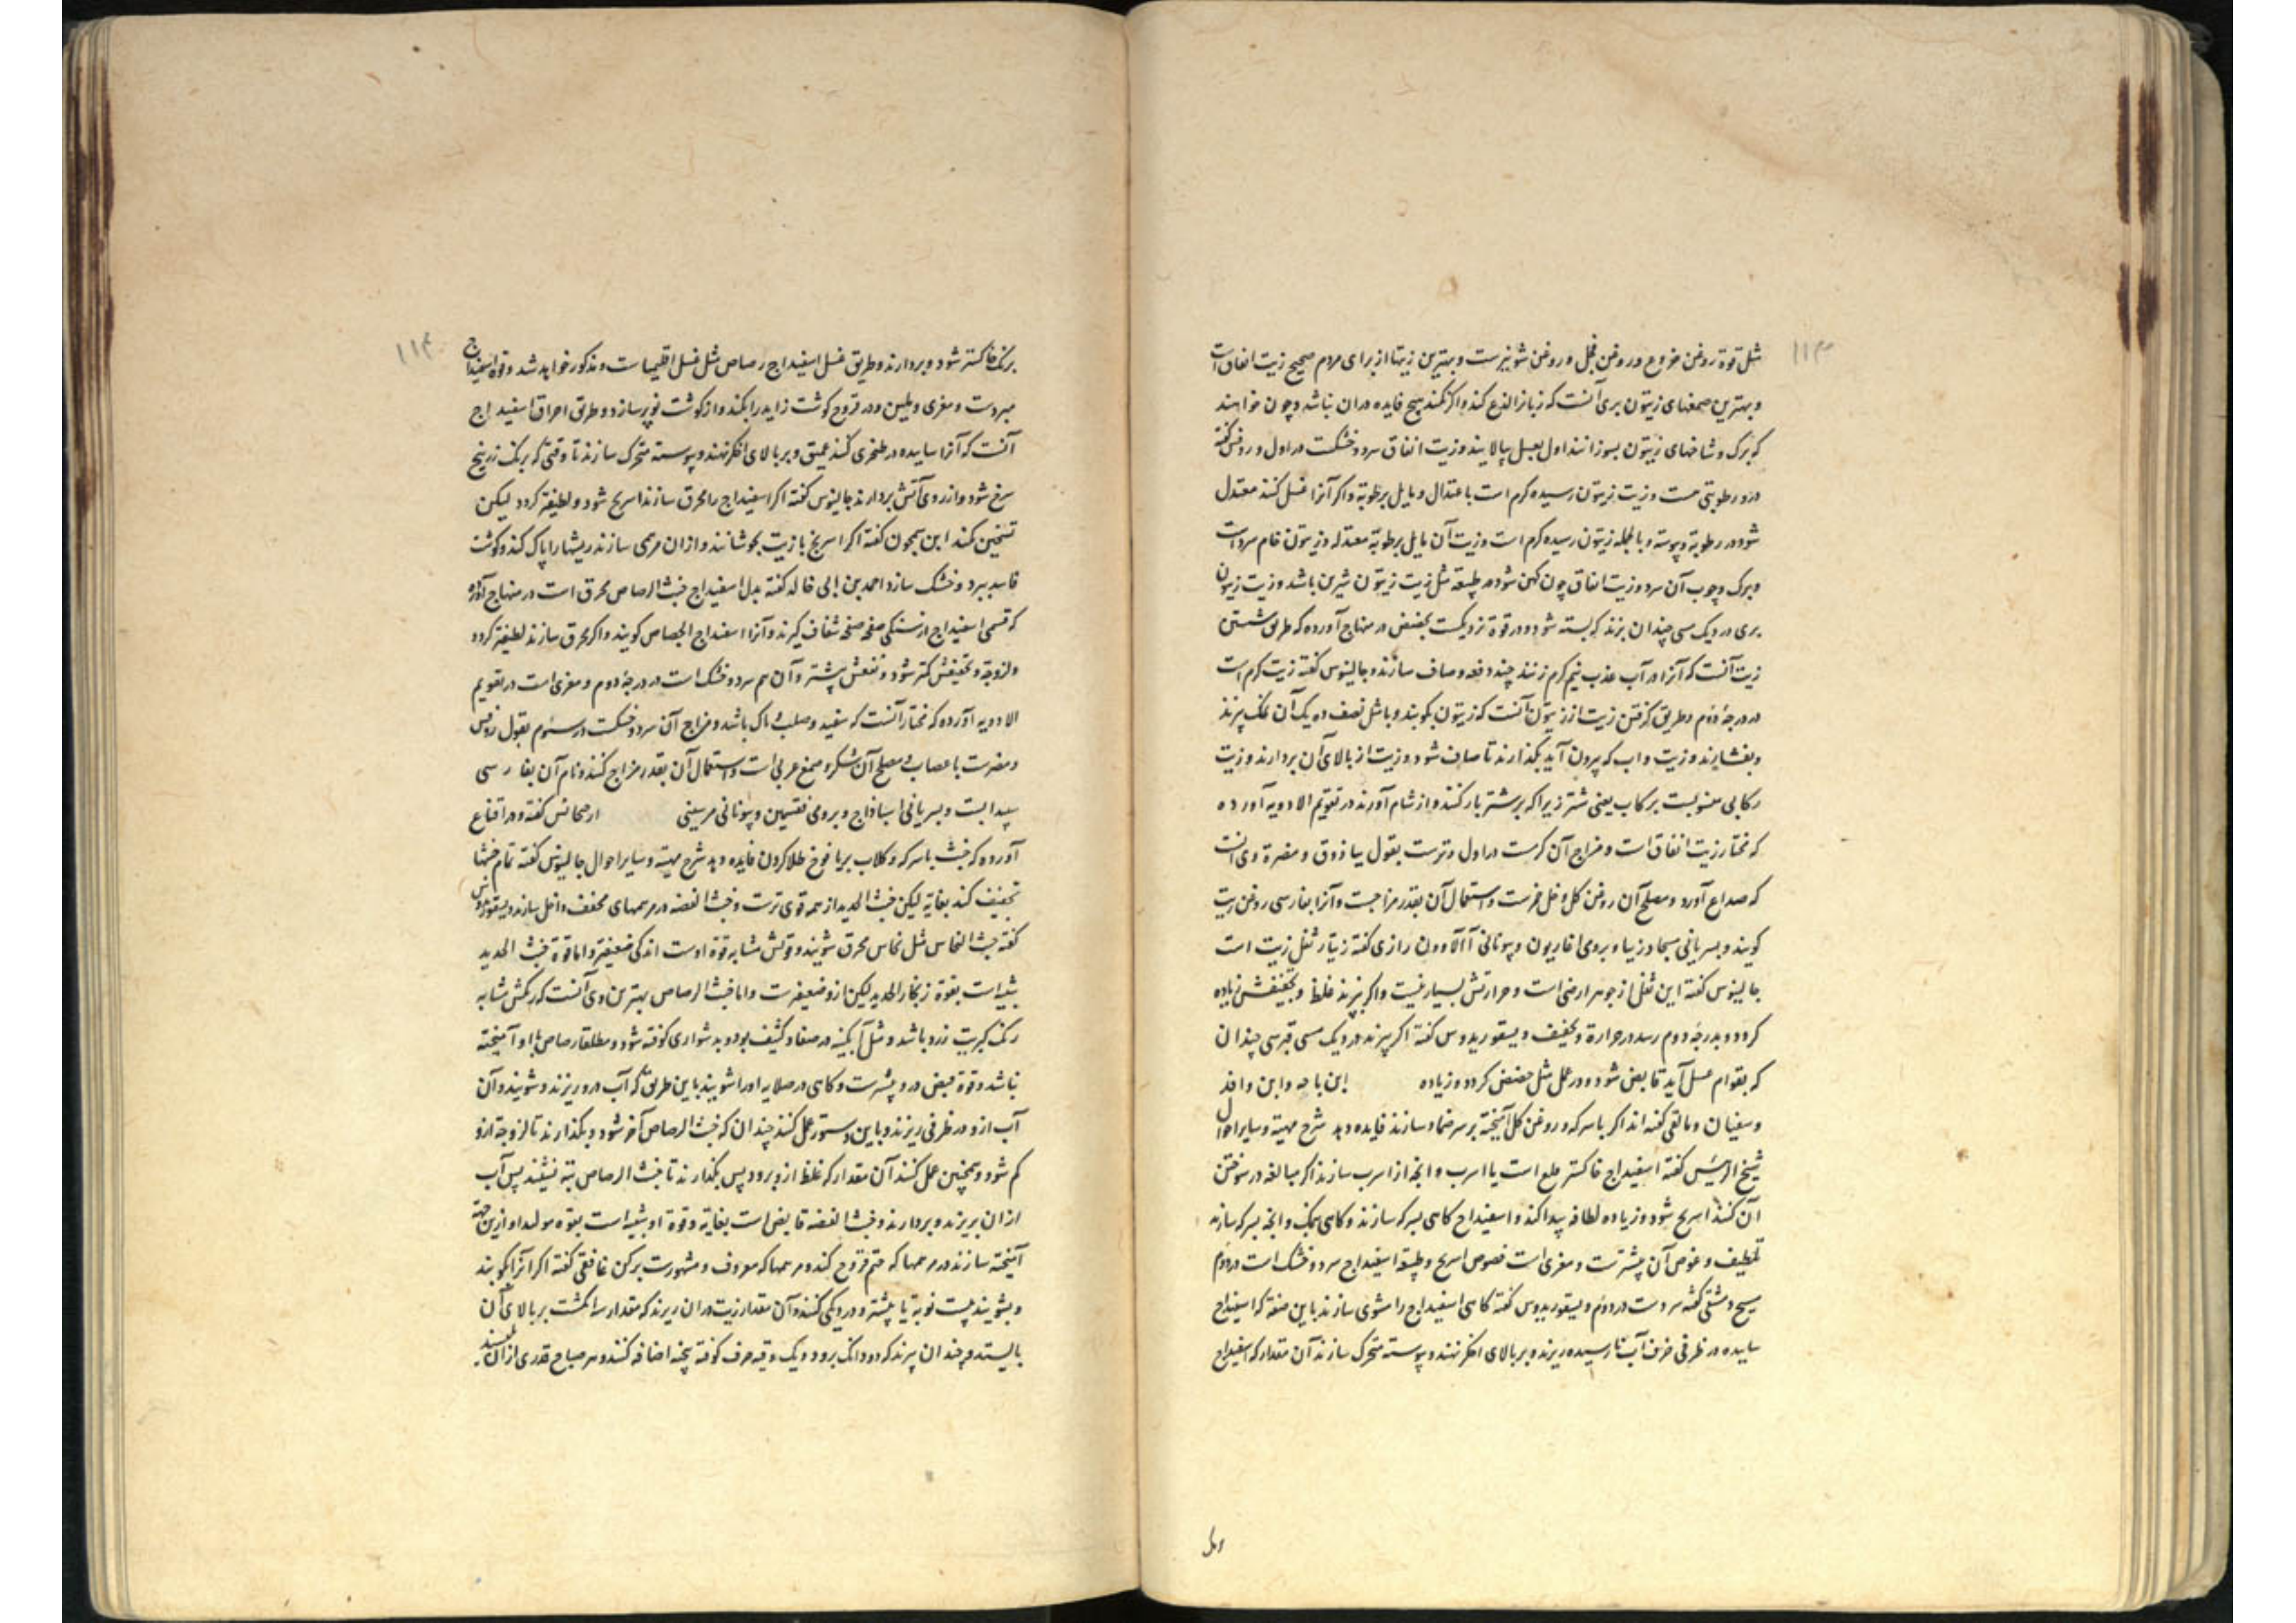 ۱۱۳
مثل قوة روغن خروع و روغن فجل و روغن شونیزست و بهترین زیتها از برای مردم صحیح زیت انفاق است
و بهترین صمغهای زیتون بری آنست که زبانرا لذع کند و اگر نکند هیچ فایده دران نباشد و چون خواهند
که برک و شاخهای زیتون بسوزانند اول بعسل بیالایند و زیت انفاق سرد و خشکست در اول و روفس گفته
درو رطوبتی هست و زیت زیتون رسیده کرم است باعتدال و مایل برطوبة و اگر آنرا غسل کنند معتدل
شود در رطوبة و یبوسة و بالجمله زیتون رسیده کرم است و زیت آن مایل برطوبة معتدله و زیتون خام سرد است
و برک و چوب آن سرد و زیت انفاق چون کهن شود در طبیعة مثل زیت زیتون شیرین باشد و زیت زیتون
بری در دیک مسی چندان بزند که بسته شود و در قوة نزدیکست بحضض در منهاج آورده که طریق شستن
زیت آنست که آنرا در آب عذب نیم کرم زنند چند دفعه و صاف سازند و جالینوس گفته زیت کرم است
در درجۀ دوم و طریق کرفتن زیت از زیتون آنست که زیتون بکوبند و با مثل نصف ده یک آن نمک بپزند
و بفشارند و زیت و اب که بیرون آید بگذارند تا صاف شود و زیت از بالای آن بردارند و زیت
رکابی منسوبست برکاب یعنی شتر زیرا که بر شتر بار کنند و از شام آورند در تقویم الادویه آورده
که مختار زیت انفاق است و مزاج آن کرمست در اول و ترست بقول بیاذوق و مضرة وی آنست
که صداع آورد و مصلح آن روغن کل و خل خمرست و استعمال آن بقدر مزاجست و آنرا بفارسی روغن زیت
کویند و بسریانی سجاد زیبا و برومی اغاریون و بیونانی آالاوون رازی گفته زیتار ثفل زیت است
جالینوس گفته این ثفل از جوهر ارضی است و حرارتش بسیار نیست و اگر بپزند غلظ و تجفیفش زیاده
کردد و بدرجۀ دوم رسد در حرارة و تجفیف و دیسقوریدوس گفته اگر بپزند در دیک مسی قبرسی چندان
که بقوام عسل آید قابض شود و در عمل مثل حضض کردد و زیاده ابن ماجه و ابن وافد
و سفیان و مالقی گفته اند اگر باسرکه و روغن کل آمیخته بر سر ضماد سازند فایده دهد شرح مهیة و سایر احوال
شیخ الرئیس گفته اسفیداج خاکستر قلع است یا اسرب و انچه از اسرب سازند اگر مبالغه در سوختن
آن کنند اسرنج شود و زیاده لطافة پیدا کند و اسفیداج کاهی بسرکه سازند و کاهی بنمک و انچه بسرکه سازند
تلطیف و غوص آن بیشترست و مغری است خصوص اسرنج و طبیعة اسفیداج سرد و خشک است در دوم
مسیح دمشقی گفته سردست در دوم و دیسقوریدوس گفته کاهی اسفیداج را مشوی سازند باین صفة که اسفیداج
ساییده در ظرفی خزف آب نارسیده ریزند و بر بالای اخگر نهند و پیوسته متحرک سازند آن مقدار که اسفیداج
۱۱۴
برنک خاکستر شود و بردارند و طریق غسل اسفیداج رصاص مثل غسل اقلیمیاست و مذکور خواهد شد و قوة اسفیداج
مبردست و مغری و ملین و در قروح کوشت زاید را بکند و از کوشت نو پر سازد و طریق احراق اسفیداج
آنست که آنرا ساییده در طغری کنند عمیق و بر بالای اخگر نهند و پیوسته متحرک سازند تا وقتی که برنک زرنیخ
سرخ شود و از روی آتش بردارند جالینوس گفته اگر اسفیداج را محرق سازند اسرنج شود و لطیفتر کردد لیکن
تسخین نکند ابن سمجون گفته اگر اسرنج با زیت بجوشانند و ازان مرهمی سازند ریشها را پاک کند و کوشت
فاسد ببرد و خشک سازد احمد بن ابی خالد گفته بدل اسفیداج خبث الرصاص محرق است در منهاج آورده
که قسمی اسفیداج از سنکی صفحه صفحه شفاف گیرند و آنرا اسفیداج الجصاص کویند و اگر محرق سازند لطیفتر کردد
و لزوجة و تجفیفش کمتر شود و نفعش بیشتر و آن هم سرد و خشک است در درجۀ دوم و مغری است در تقویم
الادویه آورده که مختار آنست که سفید و صلب و پاک باشد و مزاج آن سرد و خشکست در سئوم بقول روفس
و مضرست باعصاب و مصلح آن شکر و صمغ عربی است و استعمال آن بقدر مزاج کنند و نام آن بفارسی
سپیداب ست و بسریانی اسبا ذاج و برومی نقسیمین و بیونانی مرسینی ارصحانس گفته و در اقناع
آورده که خبث باسرکه و کلاب بر یافوخ طلا کردن فایده دهد شرح مهیة و سایر احوال جالینوس گفته تمام خبثها
تجفیف کند بغایة لیکن خبث الحدید از همه قوی ترست و خبث الفضه در مرهمهای مجفف داخل سازند و دیسقوریدوس
گفته خبث النحاس مثل نحاس محرق شویند و قوتش مشابه قوة اوست اندکی ضعیفتر و اما قوة خبث الحدید
شبیه است بقوة زنجار الحدید لیکن ازو ضعیفترست و اما خبث الرصاص بهترین وی آنست که رنکش مشابه
رنک کبریت زرد باشد و مثل آبگینه در صفا و کثیف بود و بدشواری کوفته شود و مطلقا رصاص با او آمیخته
نباشد و قوة قبض درو بیشترست و کاهی در صلایه اورا شویند باین طریق که آب درو ریزند و شویند و آن
آب ازو در ظرفی ریزند و باین دستور عمل کنند چندان که خبث الرصاص آخر شود و بگذارند تا لزوجة ازو
کم شود و همچنین عمل کنند آن مقدار که غلظ ازو برود پس بگذارند تا خبث الرصاص بته نشیند پس آب
ازان بریزند و بردارند و خبث الفضه قابض است بغایة و قوة او شبیه است بقوة مولیدا و ازین جهة
آمیخته سازند در مرهمها که ختم قروح کند و مرهمها که معروف و مشهورست برکن غافقی گفته اگر آنرا بکوبند
و بشویند بیست نوبة یا بیشتر و در دیکی کنند و آن مقدار زیت دران ریزند که مقدار سه انکشت بر بالای آن
بایستد و چندان بپزند که دو دانک برود و یک وقیه حرف کوفته بیخته اضافه کنند و هر صباح قدری ازان بلیسند